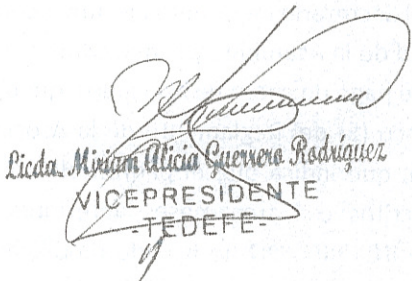 Licda. Miriam Alicia Guerrero Rodríguez
VICEPRESIDENTE
-TEDEFE-